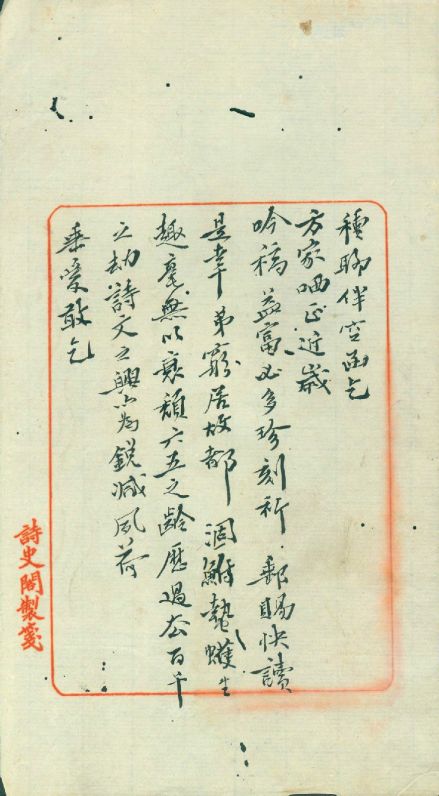 種聊伴空函乞
方家哂正近歲
吟稿益富必多珍刻祈 郵賜快讀
是幸弟窮居故都 涸鮒蟄蠖生
趣毫無以衰頹六五之齡歷過大百千
之劫詩文之興亦為銳減夙荷
垂愛敢乞
詩史閣製箋